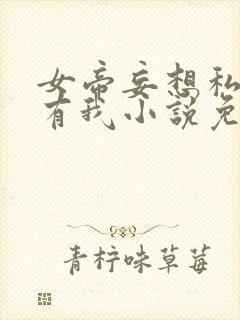 女帝妄想私
有我小说免
青柠味草莓